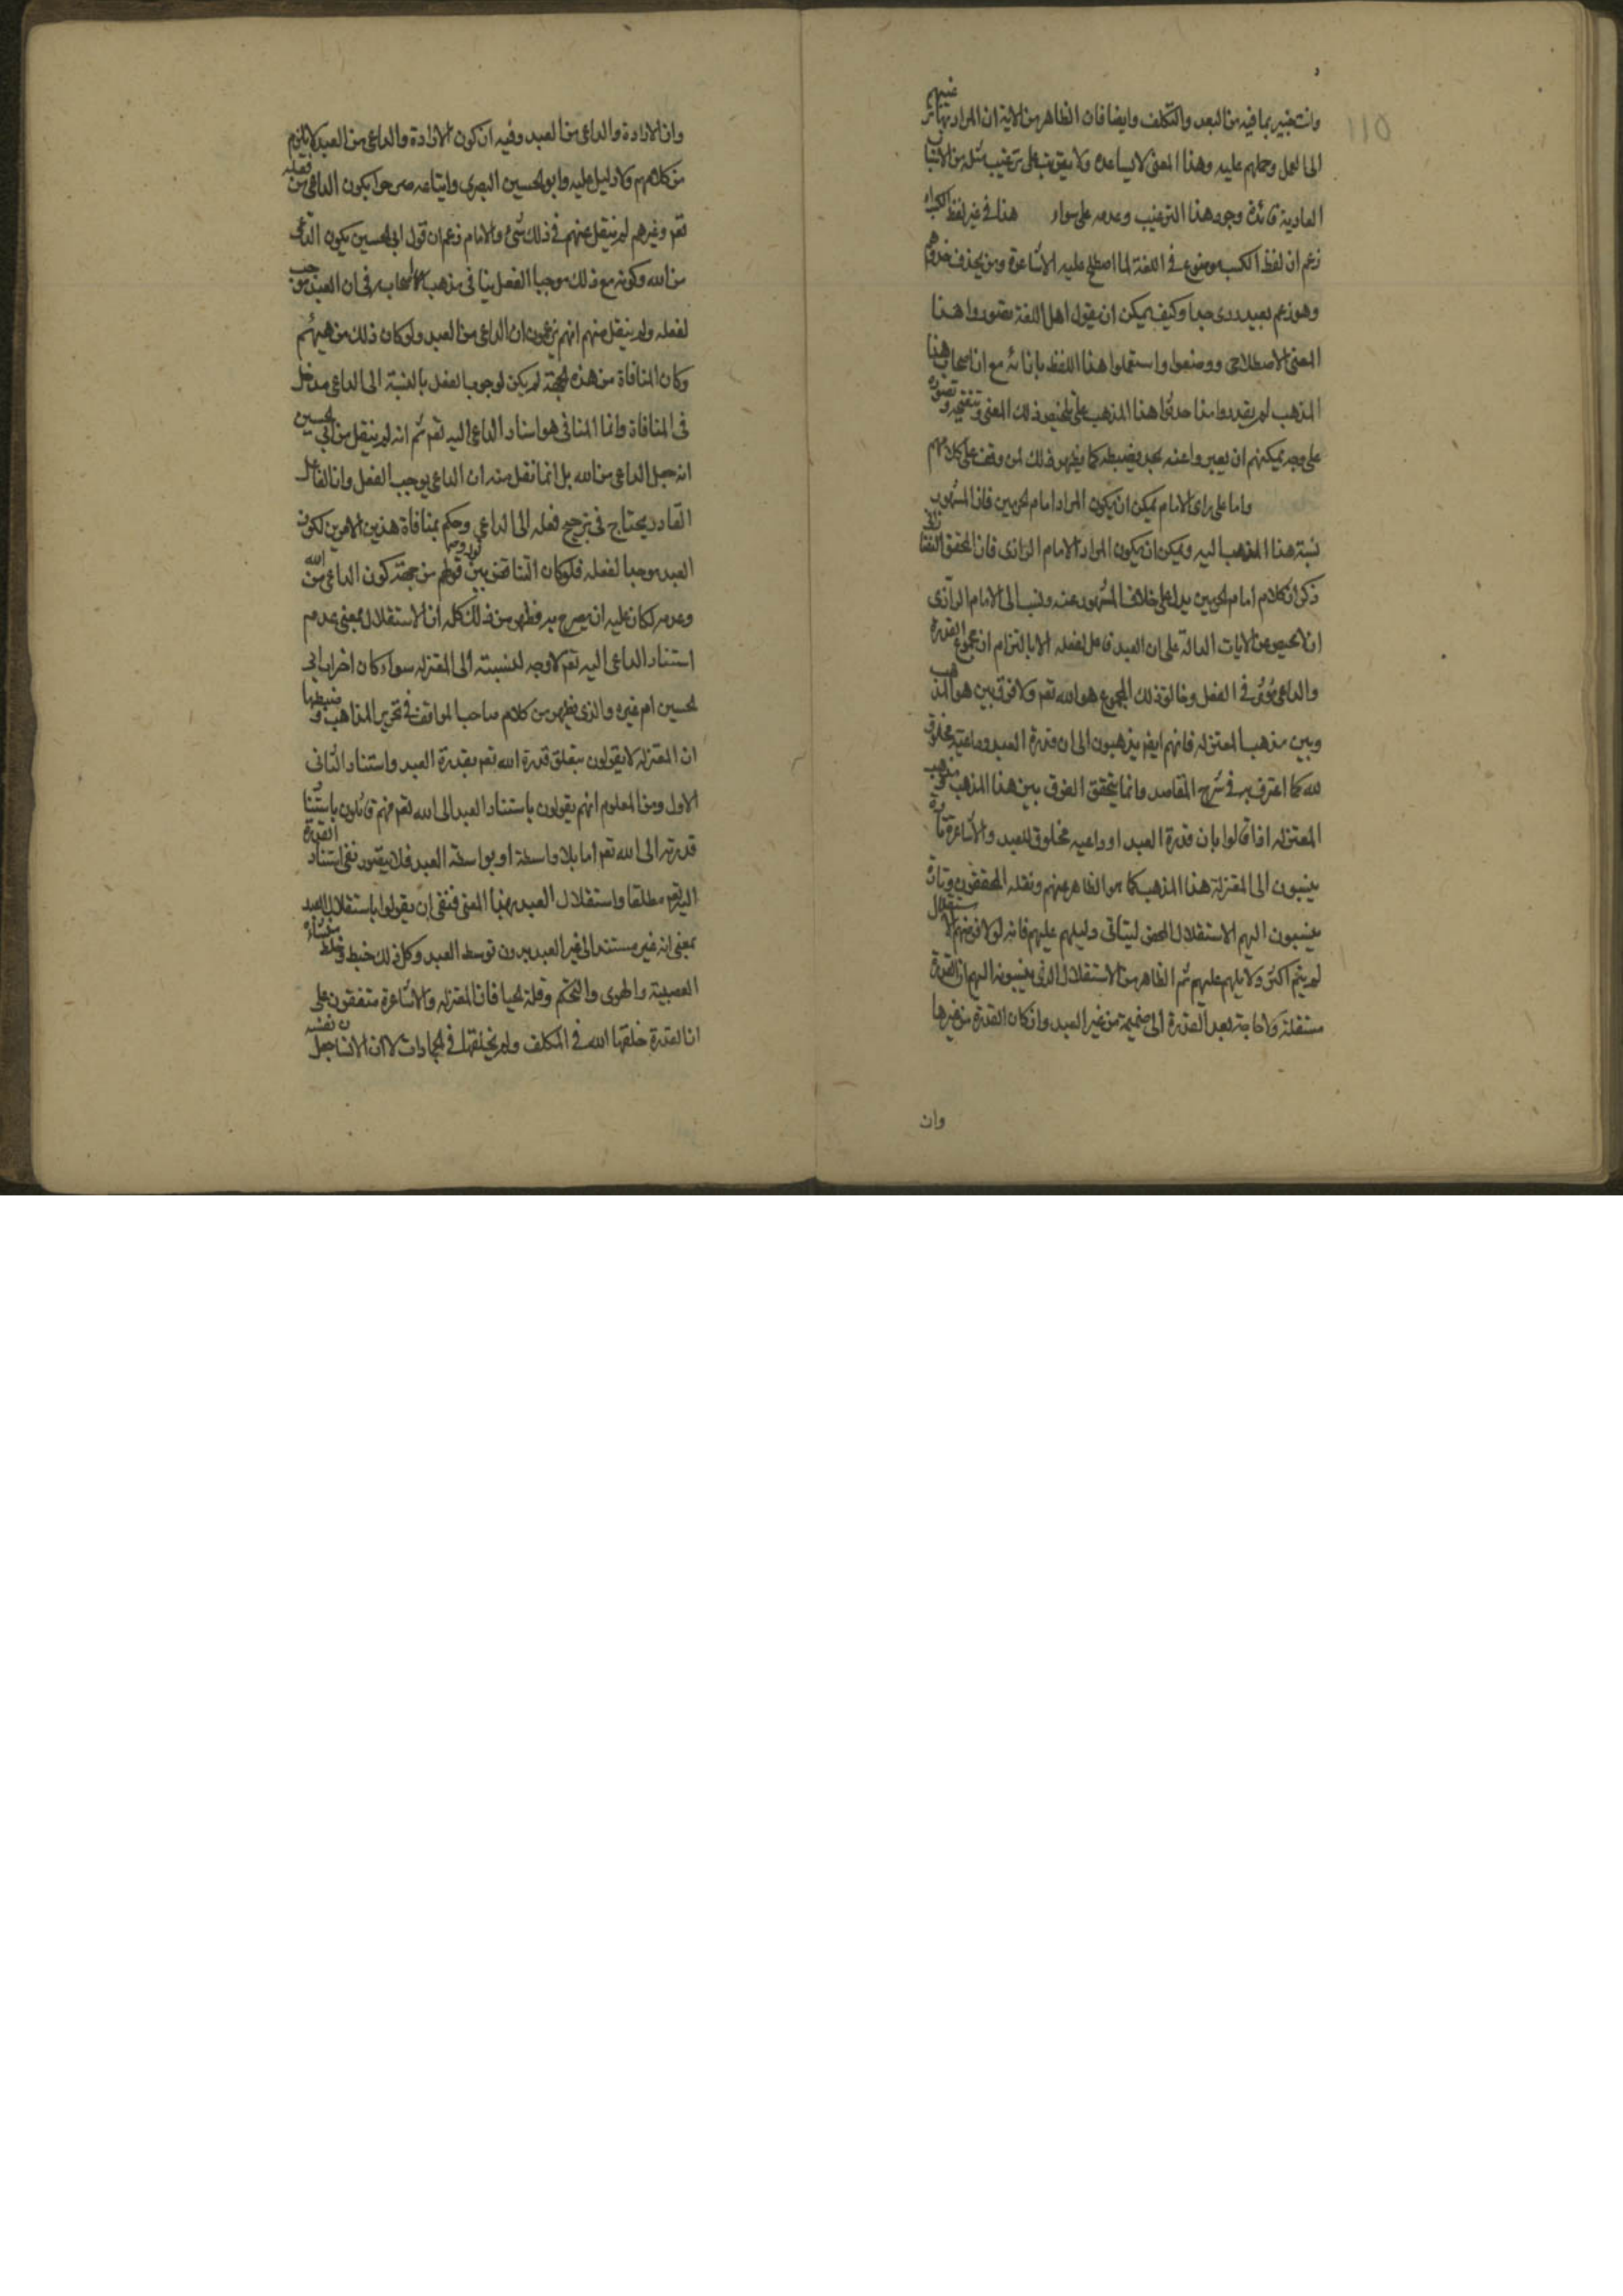 وانت خبير بما فيه من البعد والتكلف وايضا فان الظاهر من الاية ان المراد بها ترغيبهم
الى العمل وحملهم عليه وهذا المعنى لا يساعده ولا يترتب على ترغيب مثله من الاسباب
العادية فائدة وجود هذا الترغيب وعدمه على سواء هذا في غير لفظ الكسب
زعم ان لفظ الكسب موضوع في اللغة لما اصطلح عليه الاشاعرة ومن يحذف حذوهم
وهو زعم بعيد ردى جدا وكيف يمكن ان يقول اهل اللغة تصوروا هذا
المعنى الاصطلاحى ووضعوا واستعملوا هذا اللفظ بازائه مع ان اصحاب هذا
المذهب لم يقدروا منذ احدثوا هذا المذهب على تلخيص ذلك المعنى وتنقيحه وتصوره
على وجه يمكنهم ان يعبروا عنه بحد يضبطه كما يظهر ذلك لمن وقف على كلامهم
واما على راى الامام يمكن ان يكون المراد امام الحرمين فان المشهور
نسبة هذا المذهب اليه ويمكن ان يكون المراد الامام الرازى فان المحقق التفتازانى
ذكر ان كلام امام الحرمين يدل على خلاف المشهور عنه ونسب الى الامام الرازى
ان لا محيص عن الايات الدالة على ان العبد فاعل لفعله الا بالتزام ان مجموع القدرة
والداعى مؤثر في الفعل وخالق ذلك المجموع هو الله تعم ولا فرق بين هو المذهب
وبين مذهب المعتزله فانهم ايضا يذهبون الى ان قدرة العبد وداعيته مخلوق
لله كما اعترف به في شرح المقاصد وانما يتحقق الفرق بين هذا المذهب ومذهب
المعتزله اذا قالوا بان قدرة العبد او داعيه مخلوق للعبد والاشاعرة تارة
ينسبون الى المعتزلة هذا المذهب كما هو الظاهر عنهم ونقله المحققون وتارة
ينسبون اليهم الاستقلال المحض ليتاتى دليلهم عليهم فانه لولا فرضهم الاستقلال
لم يتم اكثر دلايلهم عليهم ثم الظاهر من الاستقلال الذى ينسبونه اليهم ان القدرة
مستقلة ولا حاجة بعد القدرة الى ضميمة من غير العبد وان كان القدرة من غيرها
وان
وان الارادة والداعى من العبد وفيه ان كون الارادة والداعى من العبد لا يلزم
من كلامهم ولا دليل عليه وابو الحسين البصرى واتباعه صرحوا بكون الداعى من فعله
تعم وغيرهم لم ينقل عنهم في ذلك شئ والامام زعم ان قول ابى الحسين بكون الداعى
من الله وكونه مع ذلك موجبا الفعل ينافى مذهب الاصحابه في ان العبد موجب
لفعله ولم ينقل منهم انهم يزعمون ان الداعى من العبد ولو كان ذلك من
وكان المنافاة من هذه الجهة لم يكن لوجوب الفعل بالنسبة الى الداعى مدخل
فى المنافاة وانما المنافى هو اسناد الداعى اليه تعم ثم انه لم ينقل من ابى الحسين
انه جعل الداعى من الله بل انما نقل منه ان الداعى يوجب الفعل وان الفاعل
القادر يحتاج فى ترجيح فعله الى الداعى وحكم بمنافاة هذين الامرين لكون
العبد موجبا لفعله فلو كان التناقض بين قوليهم من جهة كون الداعى من الله
وعدمه لكان عليه ان يصرح به فظهر من ذلك كله ان الاستقلال بمعنى عدم
استناد الداعى اليه تعم لا وجه لنسبته الى المعتزله سواء كان
الحسين ام غيره والذى يظهر من كلام صاحب المواقف فى تحرير المذاهب وضبطها
ان المعتزله لا يقولون بتعلق قدرة الله تعم بقدرة العبد واستناد الثانى
الاول ومن المعلوم انهم يقولون باستناد العبد الى الله تعم فهم قائلون باستناد
قدرته الى الله تعم اما بلا واسطة او بواسطة العبد فلا يتصور نفى استناد القدرة
اليه تعم مطلقا واستقلال العبد بهذا المعنى فنفى ان يقولوا باستقلال العبد
بمعنى انه غير مستند الى غير العبد بدون توسط العبد وكل ذلك خبط وخلط منشاؤه
العصبية والهوى والتحكم وقلة الحيا فان المعتزله والاشاعرة متفقون على
ان القدرة خلقها الله فى المكلف ولم يخلقها فى الجمادات لا ان الانسان جعل نفسه